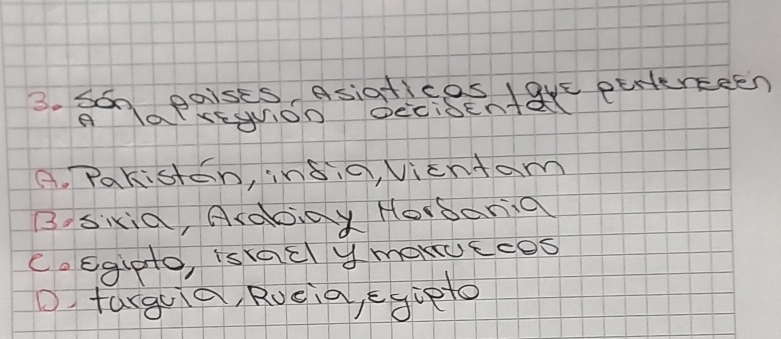 3. són paises Asiaticos que pertenecen
A la reguion occidental
A. Pakistán, india, Vientam
B. siria, Arabia y Hordania
C. Egipto, israel y marruecos
D. turquia, Rucia, egipto